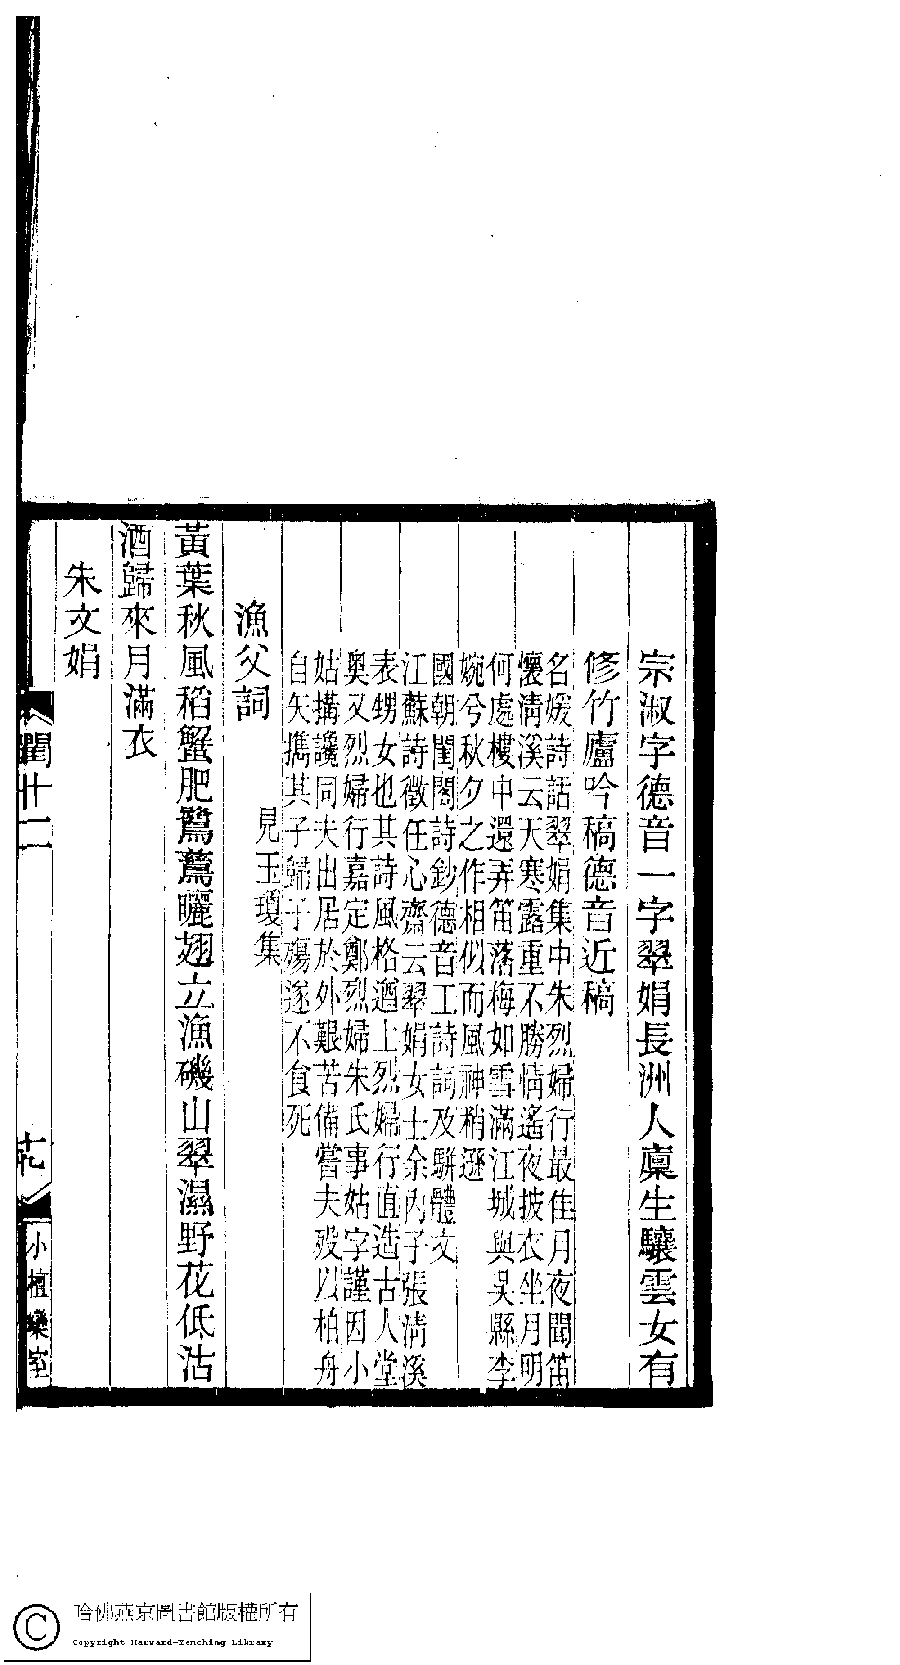 宗淑字德音一字翠娟長洲人廩生驤雲女有
修竹廬吟稿德音近稿
名媛詩話翠娟集中朱烈婦行最佳月夜聞笛
懷清溪云天寒露重不勝情遙夜披衣坐月明
何處樓中還弄笛落梅如雪滿江城與吳縣李
婉兮秋夕之作相似而風神稍遜
國朝閨閣詩鈔德音工詩詞及駢體文
江蘇詩徵任心齋云翠娟女士余內子張清溪
表甥女也其詩風格遒上烈婦行直造古人堂
奧又烈婦行嘉定鄭烈婦朱氏事姑字謹因小
姑搆讒同夫出居於外艱苦備嘗夫歿以柏舟
自矢攜其子歸子殤遂不食死
漁父詞 見玉瓊集
黃葉秋風稻蟹肥鷺鷥曬翅立漁磯山翠濕野花低沽
酒歸來月滿衣
朱文娟
閨十二
十九
小檀欒室
哈佛燕京圖書館版權所有
Copyright Harvard-Yenching Library